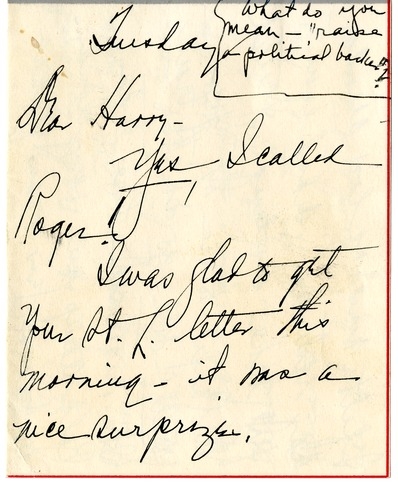 Tuesday
What do you
mean — "raise
a political
Dear Harry —
Yes, I called
Roger!
I was glad to get
your St. L. letter this
morning - it was a
nice surprize.